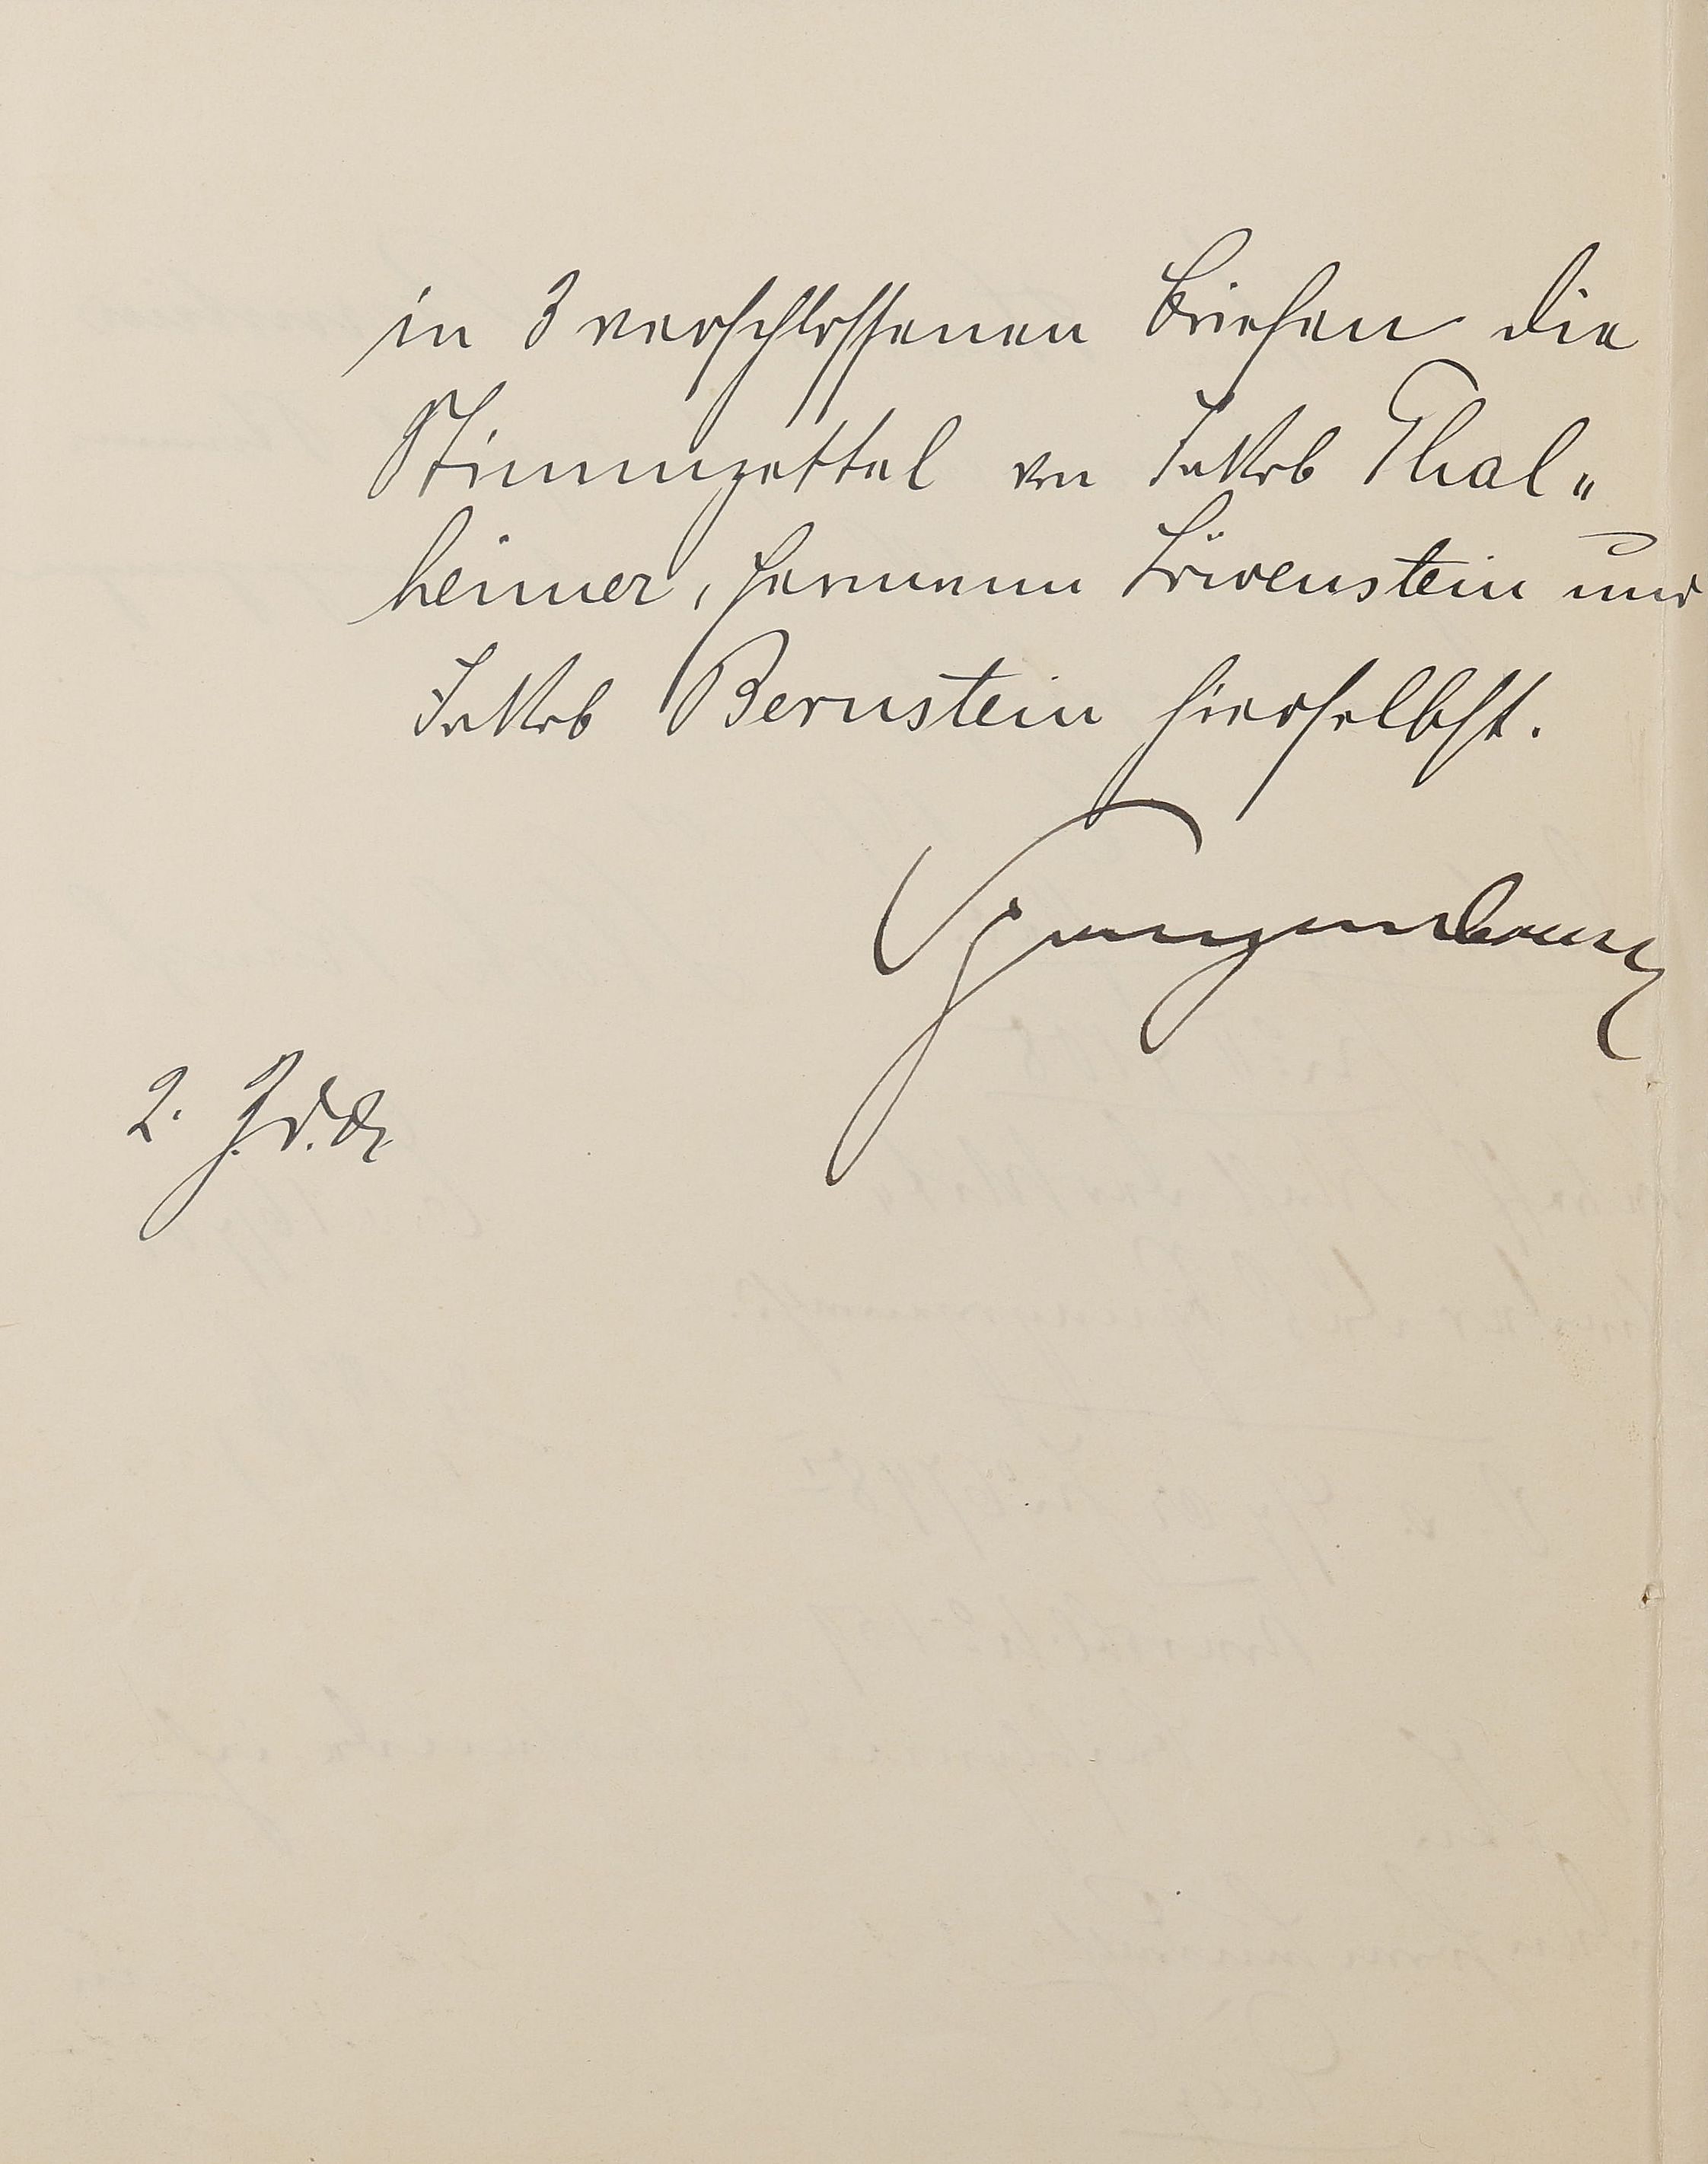 in 3 verschlossenen Briefen die
Stimmzettel von Jakob Thal„
heimer, Hermann Löwenstein und
Jakob Bernstein hierselbst.
2. Z. d. A.